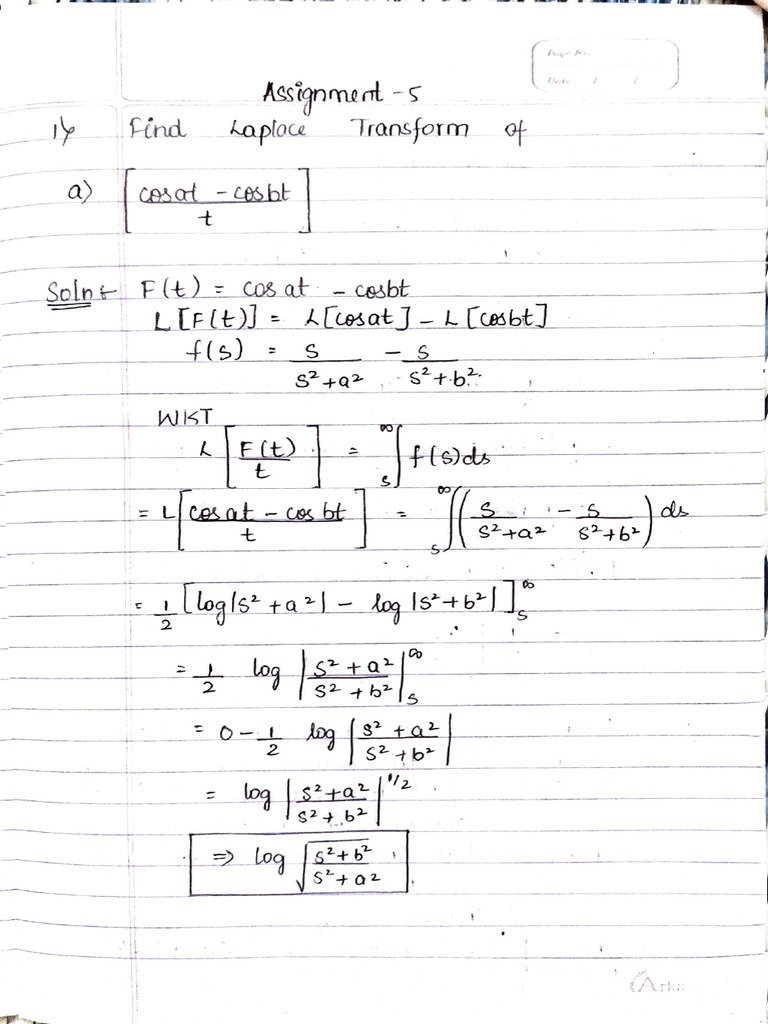 Page No.
Date / /
Assignment - 5
1) Find Laplace Transform of
a) [cosat - cosbt / t]
Soln:- F(t) = cos at - cosbt
L[F(t)] = L[cosat] - L[cosbt]
f(s) = s/(s²+a²) - s/(s²+b²)
WKT
L[F(t)/t] = ∫ₛ^∞ f(s)ds
= L[cos at - cos bt / t] = ∫ₛ^∞ (s/(s²+a²) - s/(s²+b²)) ds
= 1/2 [log|s²+a²| - log|s²+b²|]ₛ^∞
= 1/2 log |s²+a² / s²+b²|ₛ^∞
= 0 - 1/2 log |s²+a² / s²+b²|
= log |s²+a² / s²+b²|^1/2
⇒ log √(s²+b² / s²+a²)
Arka